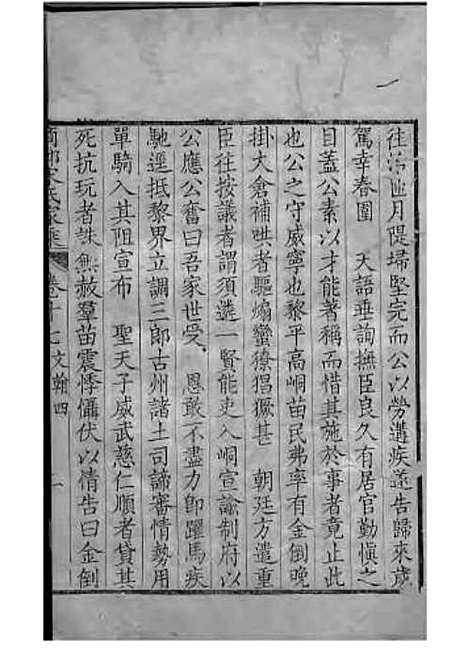 往治匝月隄埽堅完而公以勞遘疾遂告歸來歲
駕幸春圍　天語垂詢撫臣良久有居官勤愼之
目蓋公素以才能著稱而惜其施於事者竟止此
也公之守威寧也黎平高峒苗民弗率有金倒晚
掛大倉補哄者驅煽蠻獠猖獗甚　朝廷方遣重
臣往按議者謂須選一賢能吏入峒宣諭制府以
公應公奮曰吾家世受　恩敢不盡力卽躍馬疾
馳逕抵黎界立調三郎古州諸土司諦審情勢用
單騎入其阻宣布　聖天子威武慈仁順者貸其
死抗玩者誅無赦羣苗震悸懾伏以情告曰金倒
氏家乘　卷十七　文翰四